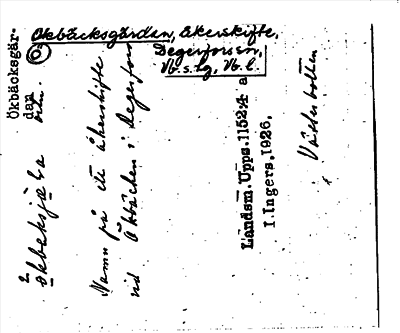 Ökbäcksgården, åkerskifte,
Degerforsn,
Vb.s.lg, Vb.l.
Ökbäcksgår-
dan
Namn på ett åkerskifte
vid Ökbäcken i Degerfors
Landsm.Upps.1152:4 a
I.Ingers.1926.
i Västerbotten